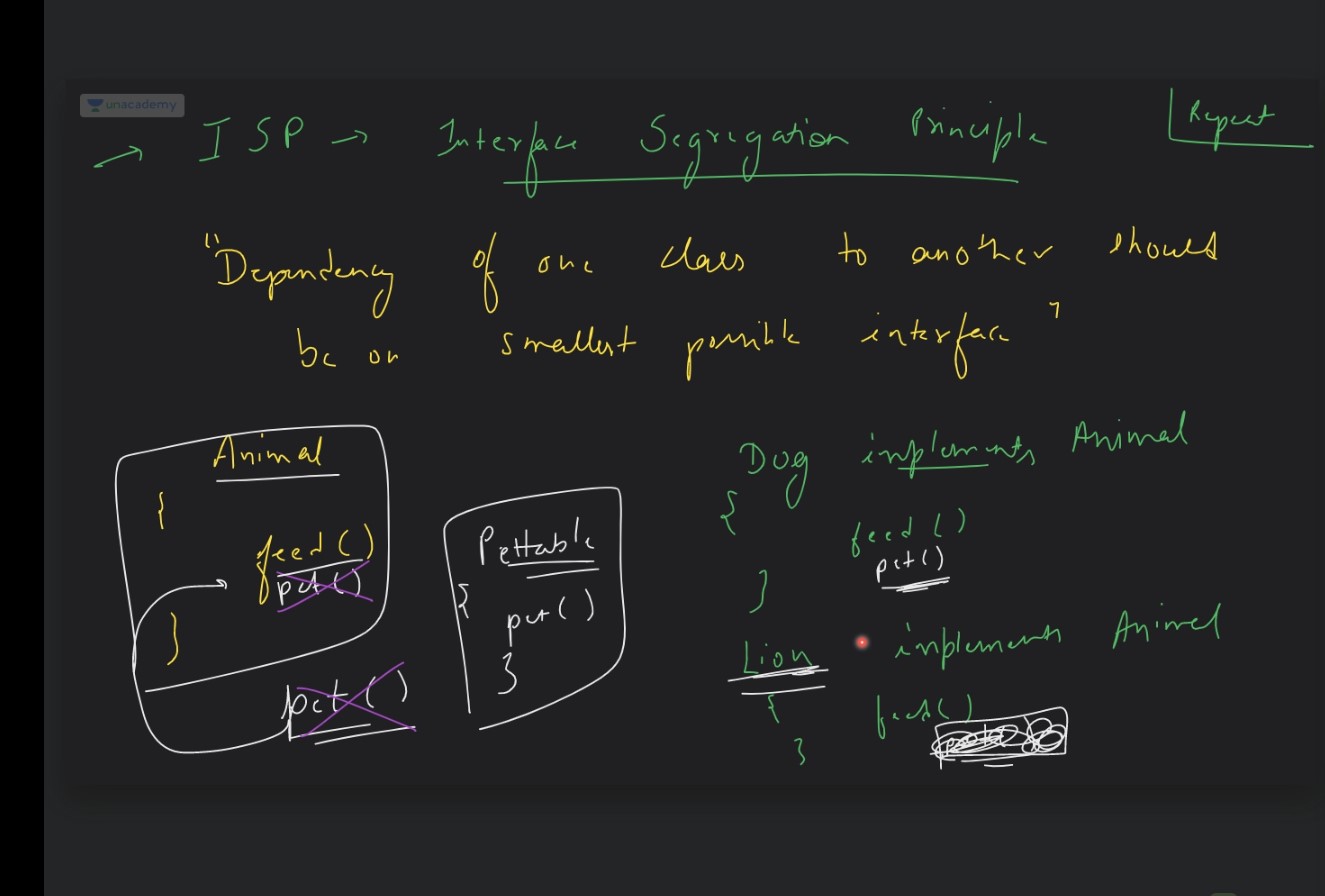 unacademy
→ ISP → Interface Segregation Principle
Repeat
"Dependency of one class to another should
be on smallest possible interface"
Animal
{
feed()
pet()
}
pet()
Pettable
{
pet()
}
Dog implements Animal
{
feed()
pet()
}
Lion implements Animal
{
feed()
}